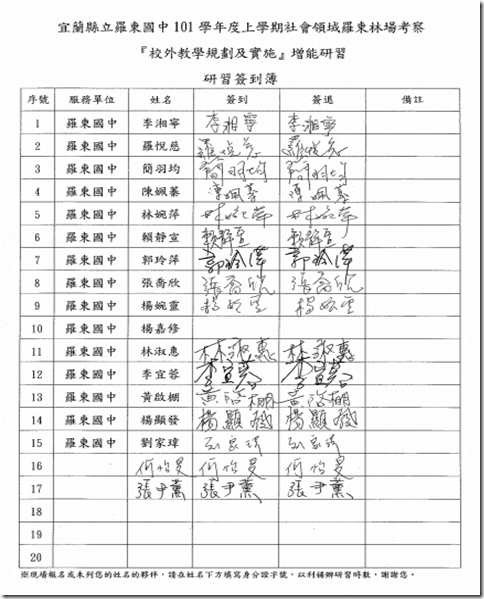 宜蘭縣立羅東國中101學年度上學期社會領域羅東林場考察
『校外教學規劃及實施』增能研習
研習簽到簿
序號 服務單位 姓名 簽到 簽退 備註
1 羅東國中 李湘寧 李湘寧 李湘寧
2 羅東國中 羅悅慈 羅悅慈 羅悅慈
3 羅東國中 簡羽均 簡羽均 簡羽均
4 羅東國中 陳姵蓁 陳姵蓁 陳姵蓁
5 羅東國中 林婉萍 林婉萍 林婉萍
6 羅東國中 賴靜宣 賴靜宣 賴靜宣
7 羅東國中 郭玲萍 郭玲萍 郭玲萍
8 羅東國中 張喬欣 張喬欣 張喬欣
9 羅東國中 楊婉靈 楊婉靈 楊婉靈
10 羅東國中 楊嘉修
11 羅東國中 林淑惠 林淑惠 林淑惠
12 羅東國中 李宜蓉 李宜蓉 李宜蓉
13 羅東國中 黃啟棚 黃啟棚 黃啟棚
14 羅東國中 楊顯發 楊顯發 楊顯發
15 羅東國中 劉家瑋 劉家瑋 劉家瑋
16 何怡旻 何怡旻 何怡旻
17 張尹薰 張尹薰 張尹薰
18
19
20
※現場報名或未列您的姓名的夥伴，請在姓名下方填寫身分證字號，以利補辦研習時數，謝謝您。